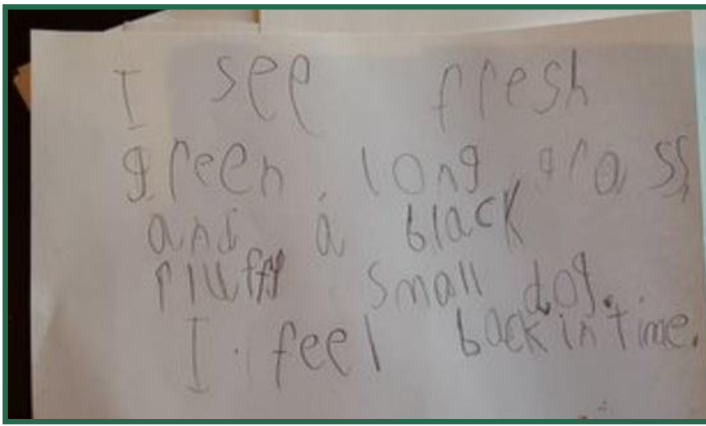 I see fresh
green, long grass,
and a black
fluffy small dog.
I feel back in time.